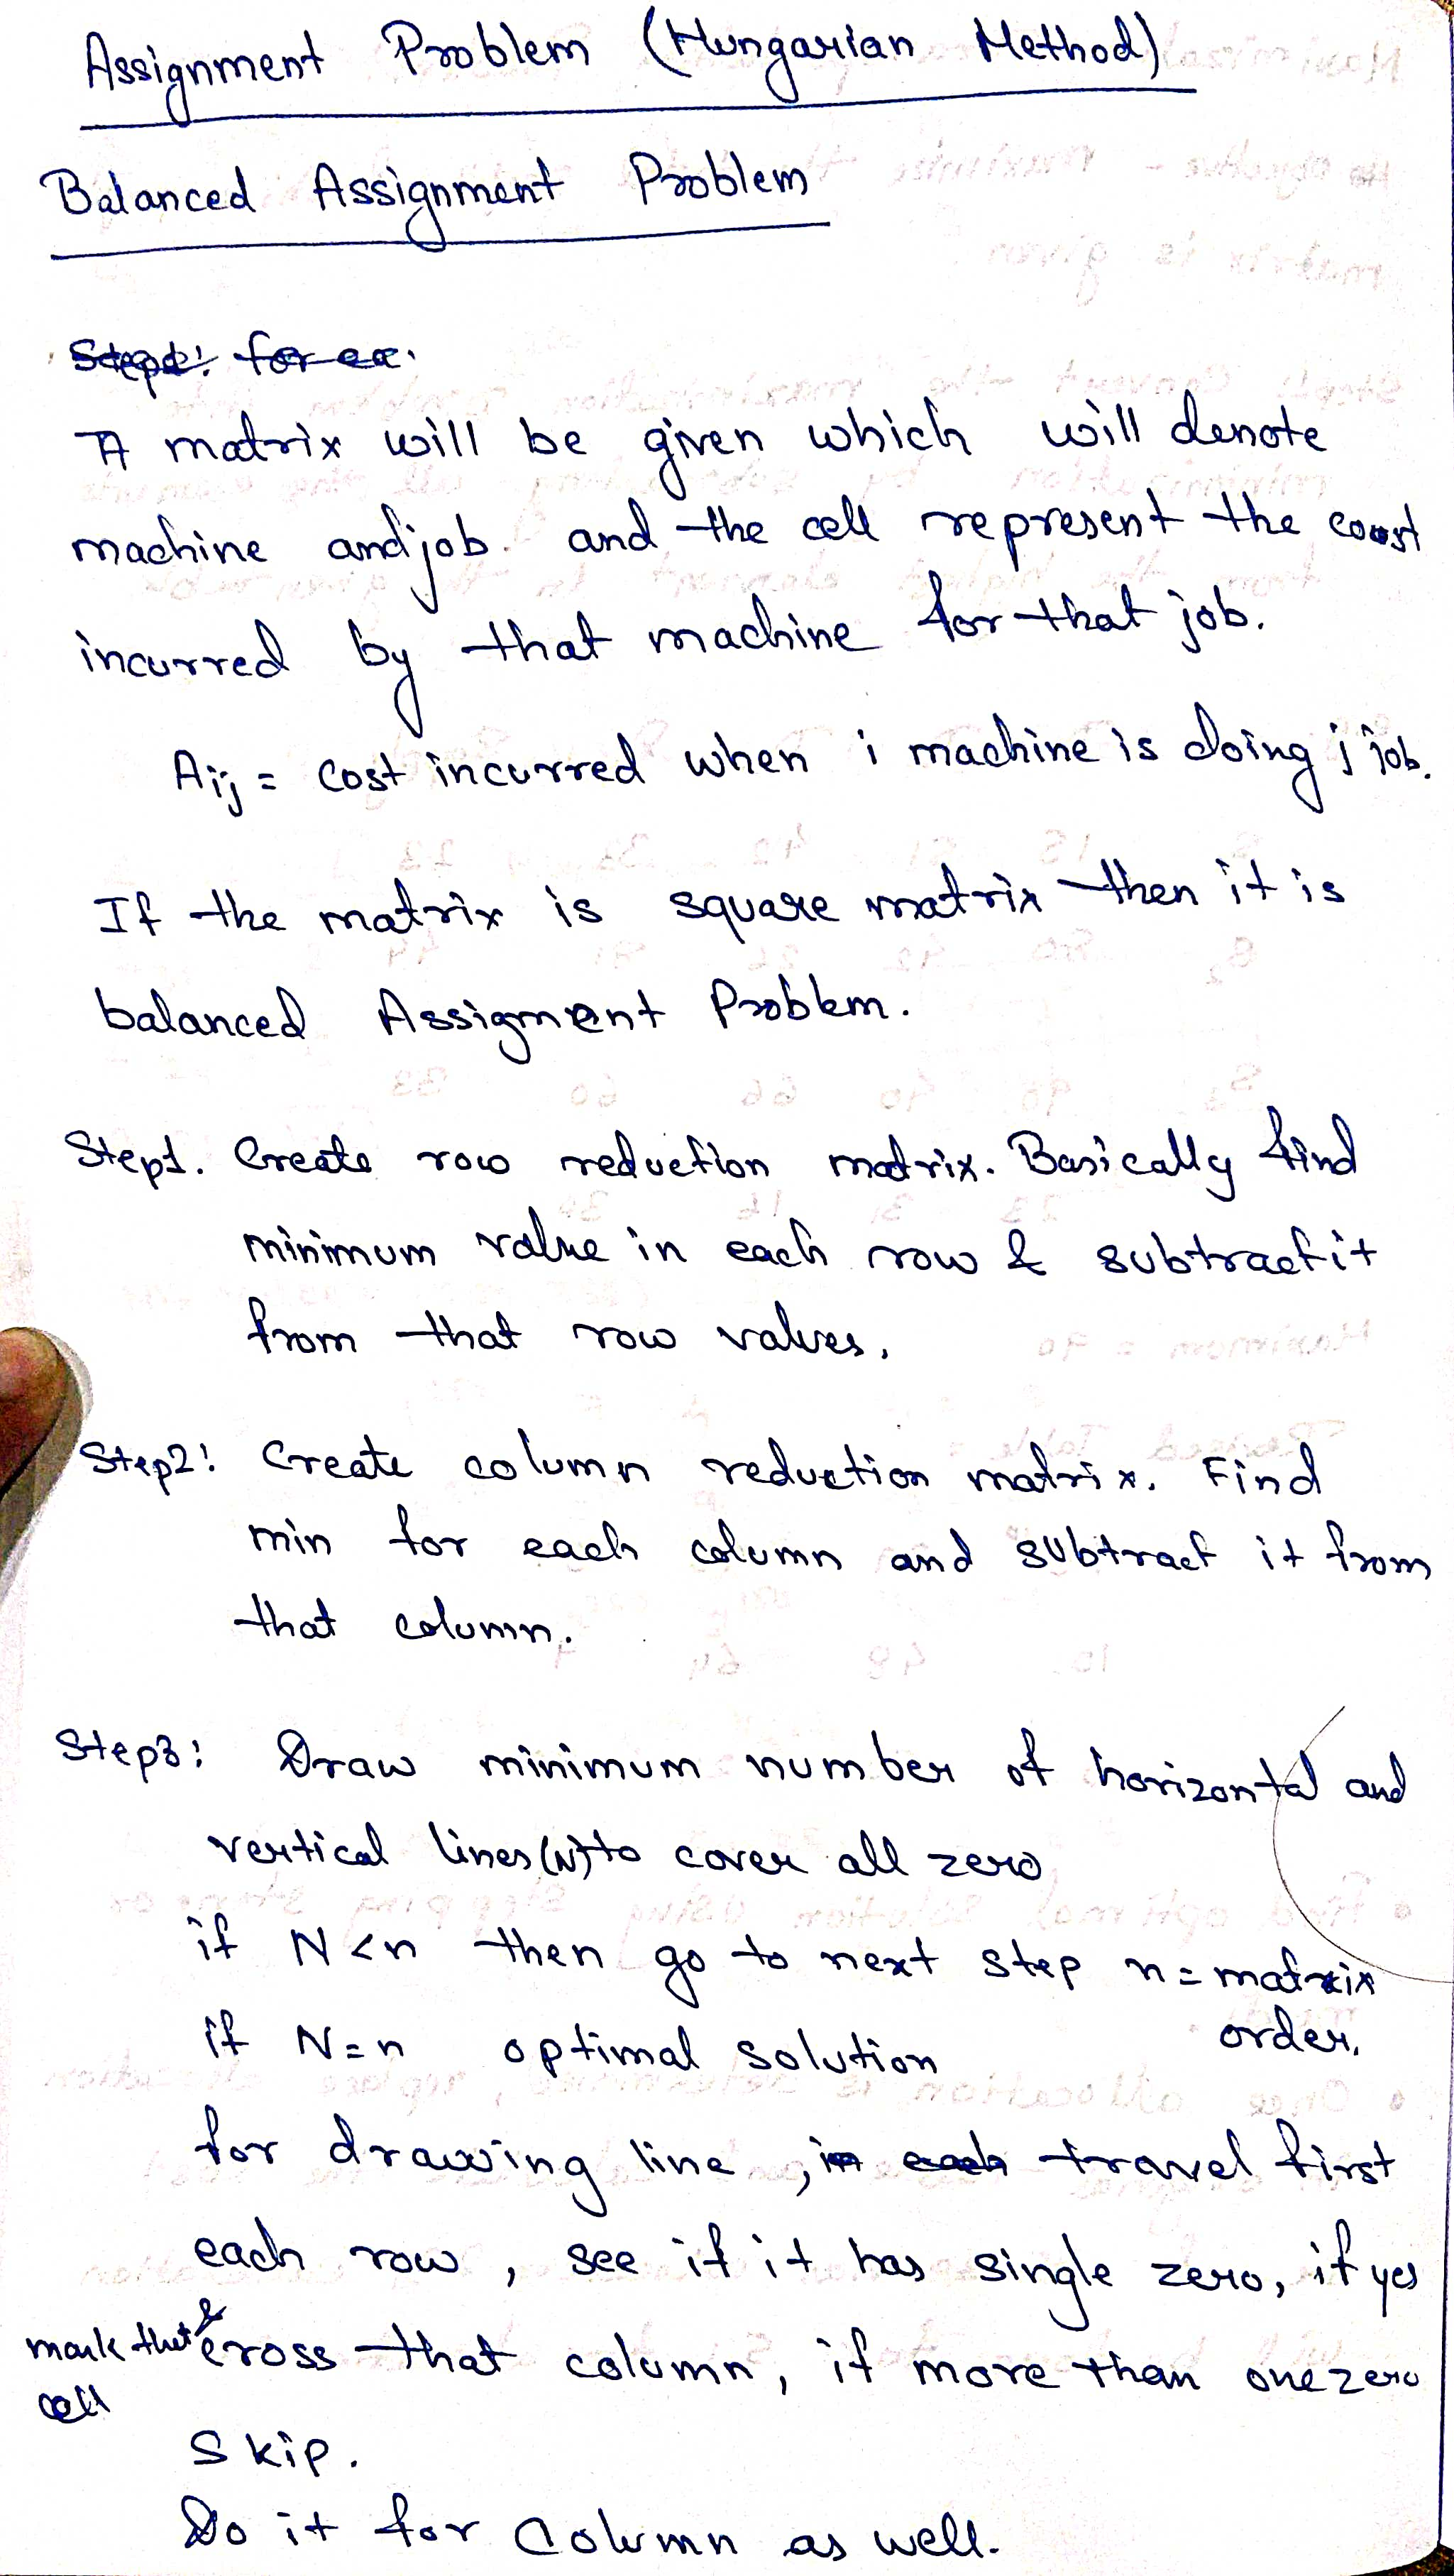 Assignment Problem (Hungarian Method)
Balanced Assignment Problem
A matrix will be given which will denote
machine and job. and the cell represent the coost
incurred by that machine for that job.
Aij = Cost incurred when i machine is doing j job.
If the matrix is square matrix then it is
balanced Assigment Problem.
Step1. Create row reduction matrix. Basically find
minimum value in each row & subtract it
from that row values.
Step2: Create column reduction matrix. Find
min for each column and subtract it from
that column.
Step3: Draw minimum number of horizontal and
vertical lines (N) to cover all zero
if N < n then go to next step n = matrix
order.
if N = n optimal solution
for drawing line, travel first
each row, see if it has single zero, if yes
mark that cell & cross that column, if more than one zero
skip.
Do it for Column as well.